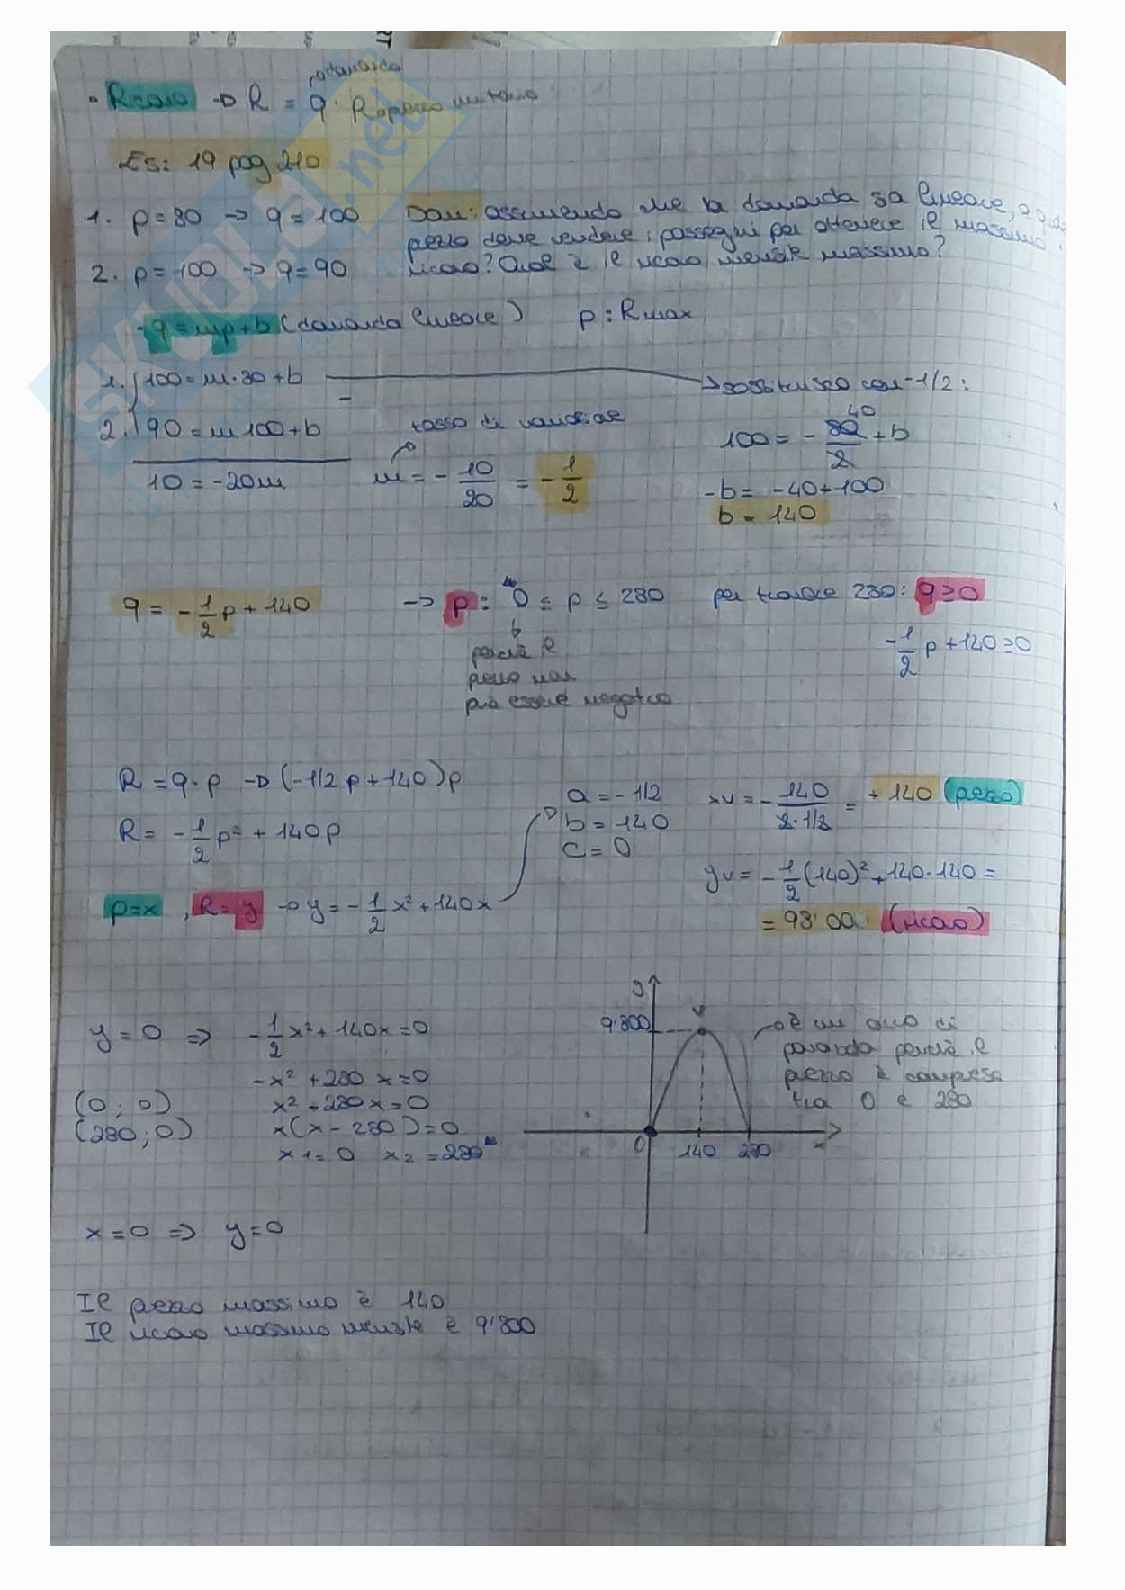 • Ricavo → R = q · R prezzo unitario
domanda
Es: 19 pag 210
1. p = 80 → q = 100
2. p = 100 → q = 90
Dom: assumendo che la domanda sia lineare, a quale
prezzo deve vendere i passeggini per ottenere il massimo
ricavo? Qual è il ricavo mensile massimo?
q = mp + b (domanda lineare) p : Rmax
1. 100 = m·80 + b
2. 90 = m 100 + b
10 = -20m
tasso di variazione
m = - 10/20 = - 1/2
→ sostituisco con -1/2 :
100 = - 80/2 + b
40
-b = -40+100
b = 140
q = - 1/2 p + 140 → p : 0 ≤ p ≤ 280 per trovare 280: q ≥ 0
perchè il
prezzo non
può essere negativo
- 1/2 p + 140 ≥ 0
R = q · p → (-1/2 p + 140) p
R = - 1/2 p² + 140p
p = x , R = y → y = - 1/2 x² + 140x
a = -1/2
b = 140
c = 0
xv = - 140 / 2·1/2 = +140 (prezzo)
yv = - 1/2 (140)² + 140·140 =
(ricavo)
y = 0 ⇒ - 1/2 x² + 140x = 0
-x² + 280 x = 0
(0 ; 0) x² - 280x = 0
(280 ; 0) x(x - 280) = 0
x1 = 0 x2 = 280
x = 0 ⇒ y = 0
y
9'800
V
0 140 280 x
è un arco di
parabola perchè il
prezzo è compreso
tra 0 e 280
Il prezzo massimo è 140
Il ricavo massimo mensile è 9'800